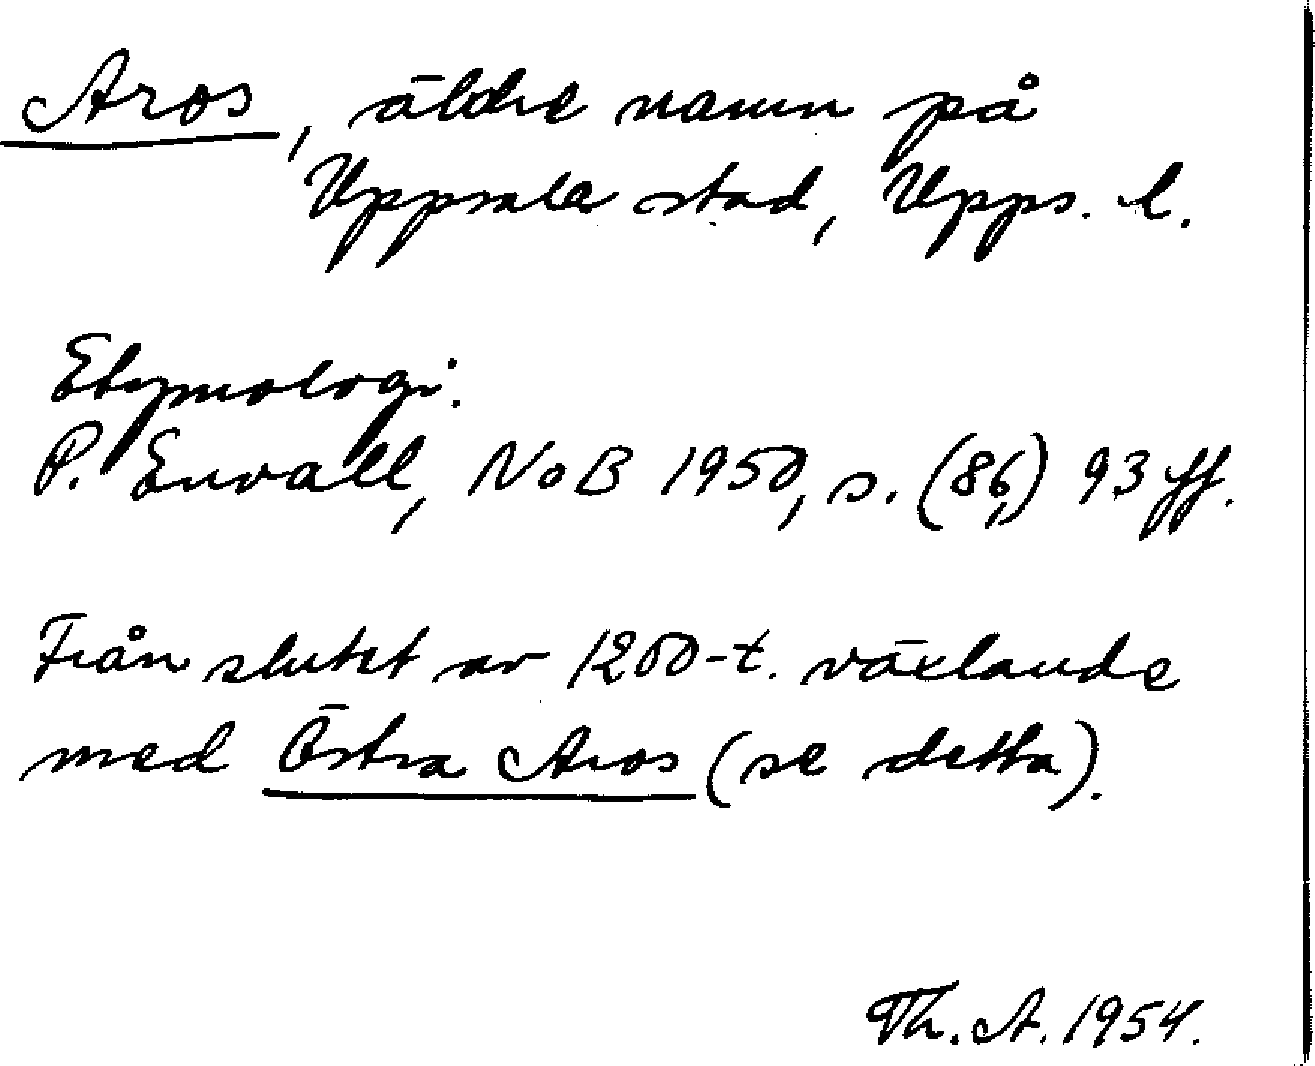 Aros, äldre namn på
Uppsala stad, Upps. l.
Etymologi:
P. Envall, NoB 1950, s. (86,) 93 ff.
Från slutet av 1200-t. växlande
med Östra Aros (se detta).
Th. A. 1954.